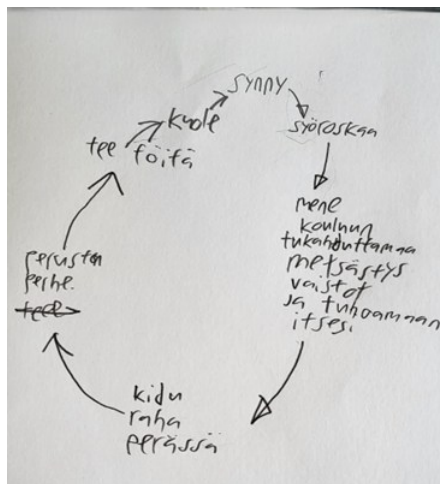 synny
syöroskaa
mene
kouluun
tukahduttamaa
metsästys
vaistot
ja tuhoamaan
itsesi
kidu
raha
perässä
perustaa
perhe.
tee töitä
kuole